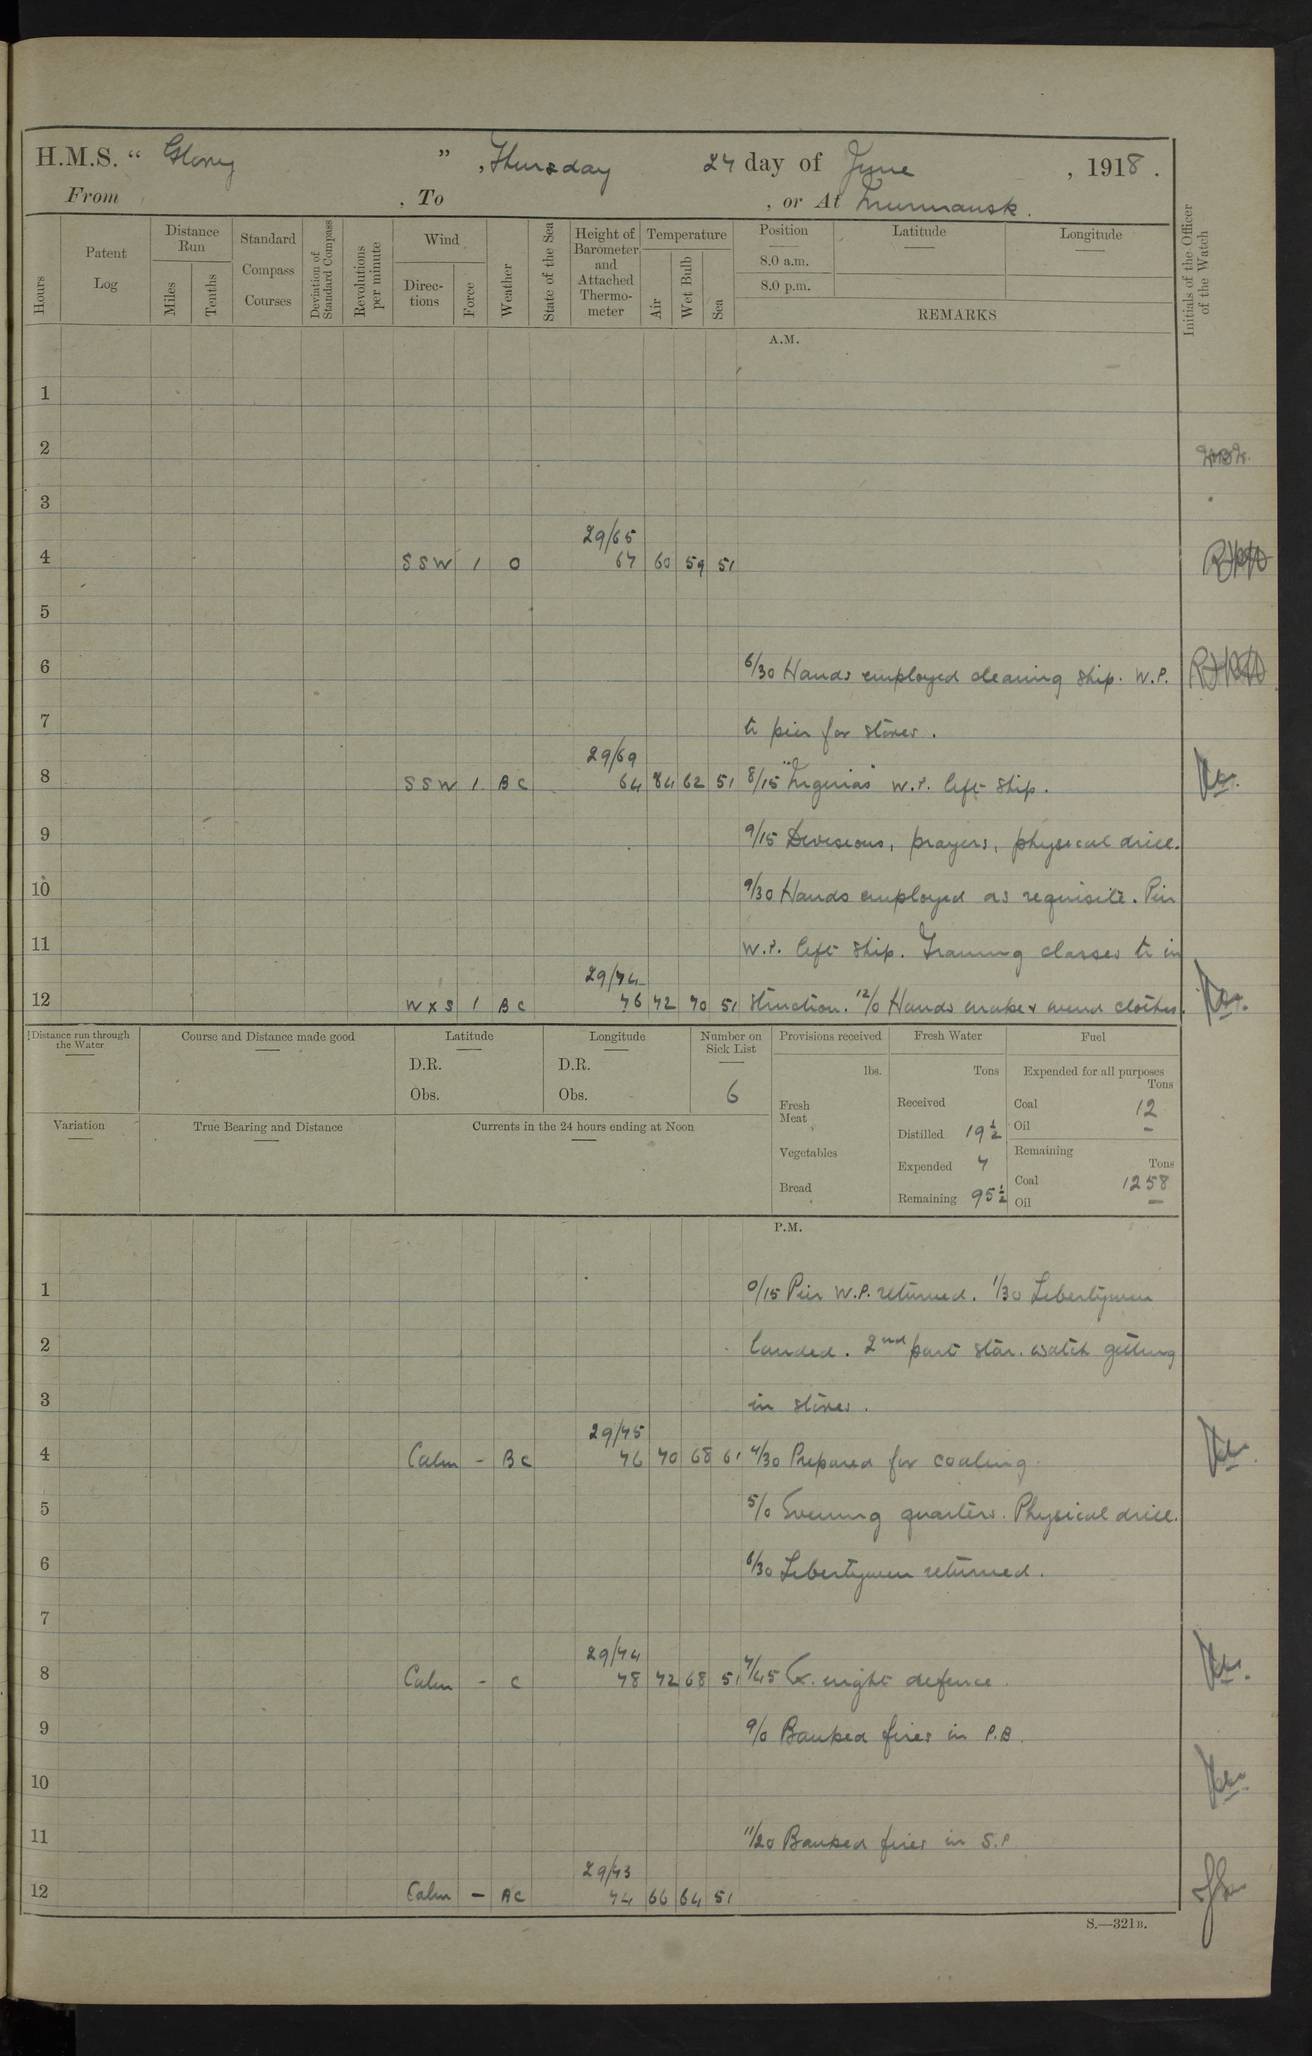 H.M.S. “ Glory ” , Thursday 27 day of June , 1918 .
From , To , or At Murmansk .
Hours
Patent Log
Distance Run
Miles
Tenths
Standard Compass Courses
Deviation of Standard Compass
Revolutions per minute
Wind
Direc-tions
Force
Weather
State of the Sea
Height of Barometer and Attached Thermo-meter
Temperature
Air
Wet Bulb
Sea
Position
8.0 a.m.
8.0 p.m.
Latitude
Longitude
REMARKS
Initials of the Officer of the Watch
A.M.
1
2
3
29/65
4 SSW 1 O 67 60 59 51
5
6 6/30 Hands employed cleaning ship. W.P.
7 to pier for stores.
29/69
8 SSW 1 BC 64 64 62 51 8/15 W.P. left ship.
9 9/15 Divisions, prayers, physical drill.
10 9/30 Hands employed as requisite. Pier
11 W.P. left ship. Training classes to in
29/74
12 WXS 1 BC 76 72 70 51 struction. 12/0 Hands make & mend clothes.
Distance run through the Water
Course and Distance made good
Latitude
D.R.
Obs.
Longitude
D.R.
Obs.
Number on Sick List
6
Provisions received
lbs.
Fresh Meat
Vegetables
Bread
Fresh Water
Tons
Received
Distilled 19 1/2
Expended 7
Remaining 95 1/2
Fuel
Expended for all purposes
Tons
Coal 12
Oil –
Remaining
Tons
Coal 1258
Oil –
Variation
True Bearing and Distance
Currents in the 24 hours ending at Noon
P.M.
1 0/15 Pier W.P. returned. 1/30 Libertymen
2 landed. 2nd part star. watch getting
3 in stores.
29/75
4 Calm - BC 76 70 68 61 4/30 Prepared for coaling.
5 5/0 Evening quarters. Physical drill.
6 6/30 Libertymen returned.
7
29/74
8 Calm - C 78 72 68 51 7/45 Ex. night defence.
9 9/0 Banked fires in P.B.
10
11 11/20 Banked fires in S.P
29/73
12 Calm – BC 74 66 64 51
S.—321B.